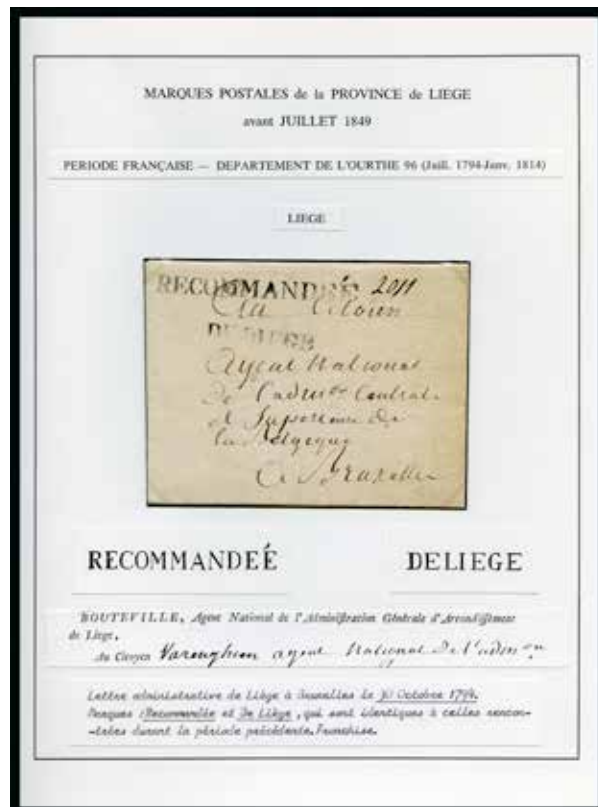 MARQUES POSTALES de la PROVINCE de LIEGE
avant JUILLET 1849
PERIODE FRANÇAISE — DEPARTEMENT DE L'OURTHE 96 (Juill. 1794-Janv. 1814)
LIEGE
RECOMMANDEÉ 2011
Au Citoien
DELIEGE
Agent National
de l'adm.on Centrale
et Superieure de
la Belgique
a Bruxelles
RECOMMANDEÉ DELIEGE
BOUTEVILLE, Agent National de l'Administration Générale d'Arrondissement
de Liege,
Au Citoyen Varenghien agent National de l'adm.on
Lettre administrative de Liège à Bruxelles le 30 Octobre 1794.
Marques (Recommandée et De Liège, qui sont identiques à celles rencon-
-trées durant la période précédente. Franchise.